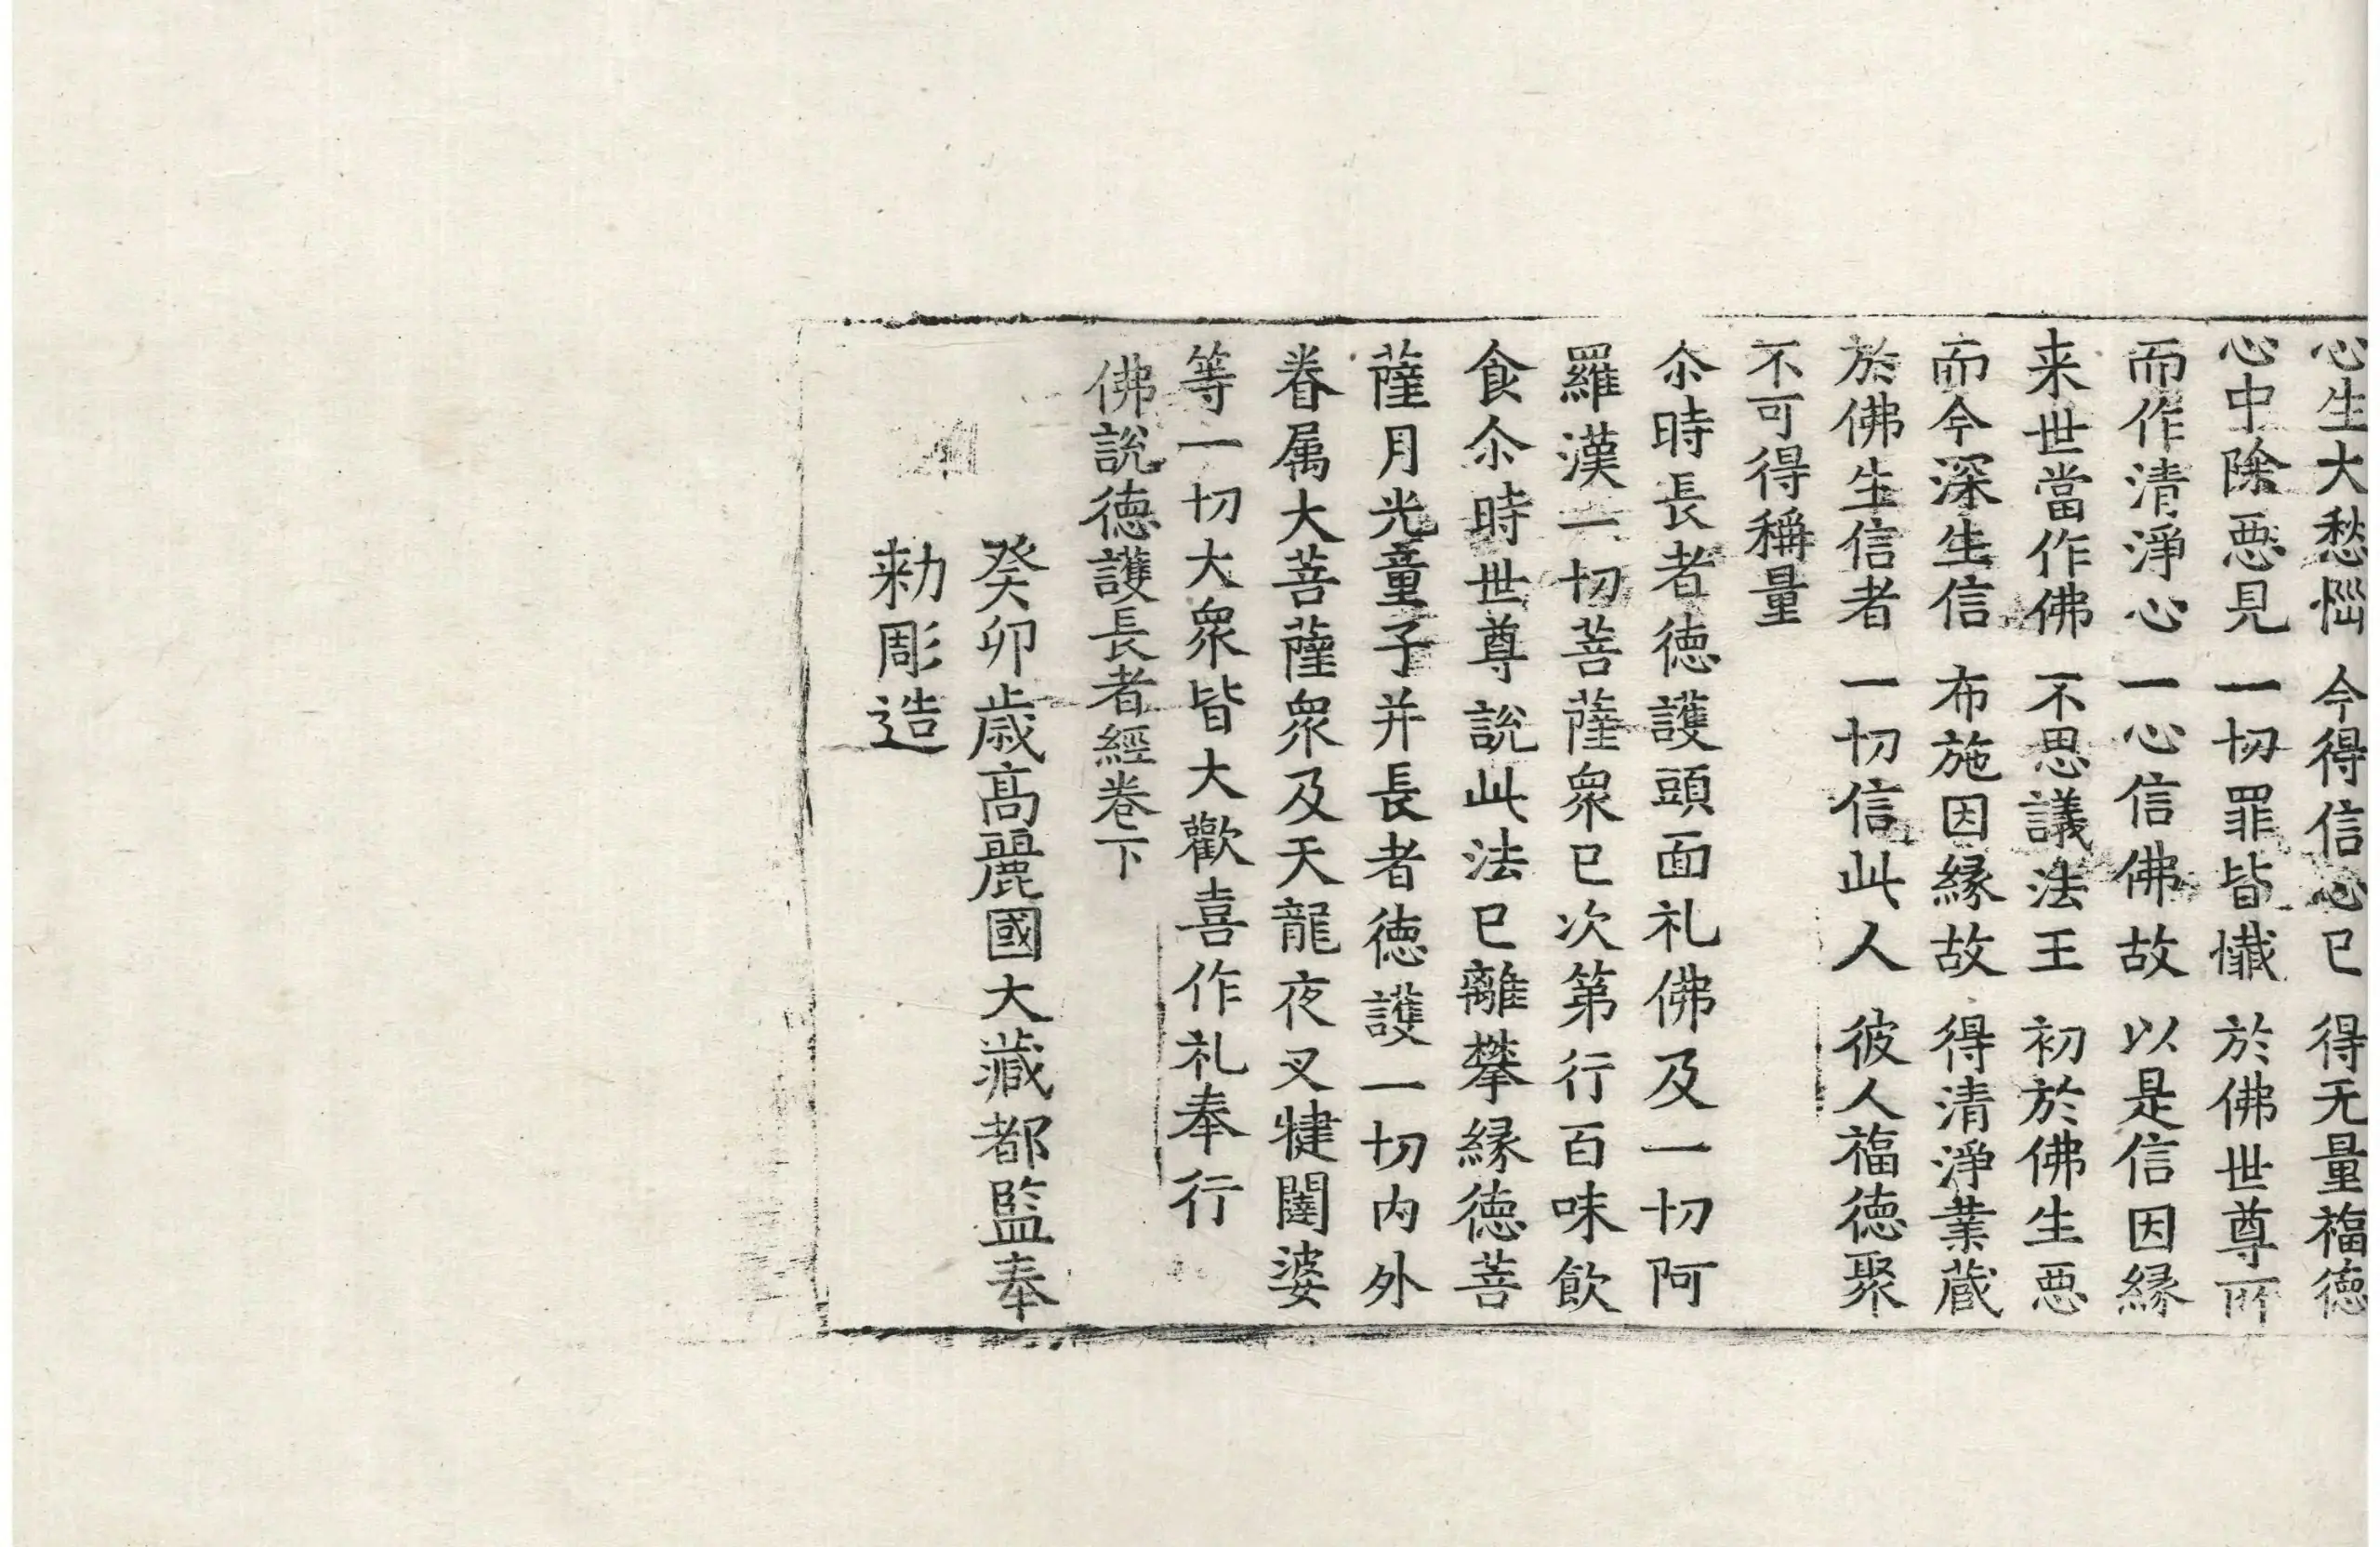 心生大愁惱　今得信心已　得无量福德
心中除惡見　一切罪皆懺　於佛世尊所
而作清淨心　一心信佛故　以是信因縁
来世當作佛　不思議法王　初於佛生惡
而今深生信　布施因縁故　得清淨業蔵
於佛生信者　一切信此人　彼人福德聚
不可得稱量
尒時長者德護頭面礼佛及一切阿
羅漢一切菩薩衆已次第行百味飲
食尒時世尊說此法已離攀縁德菩
薩月光童子并長者德護一切内外
眷属大菩薩衆及天龍夜叉犍闥婆
等一切大衆皆大歡喜作礼奉行
佛說德護長者經卷下
癸卯歳高麗國大藏都監奉
勑彫造